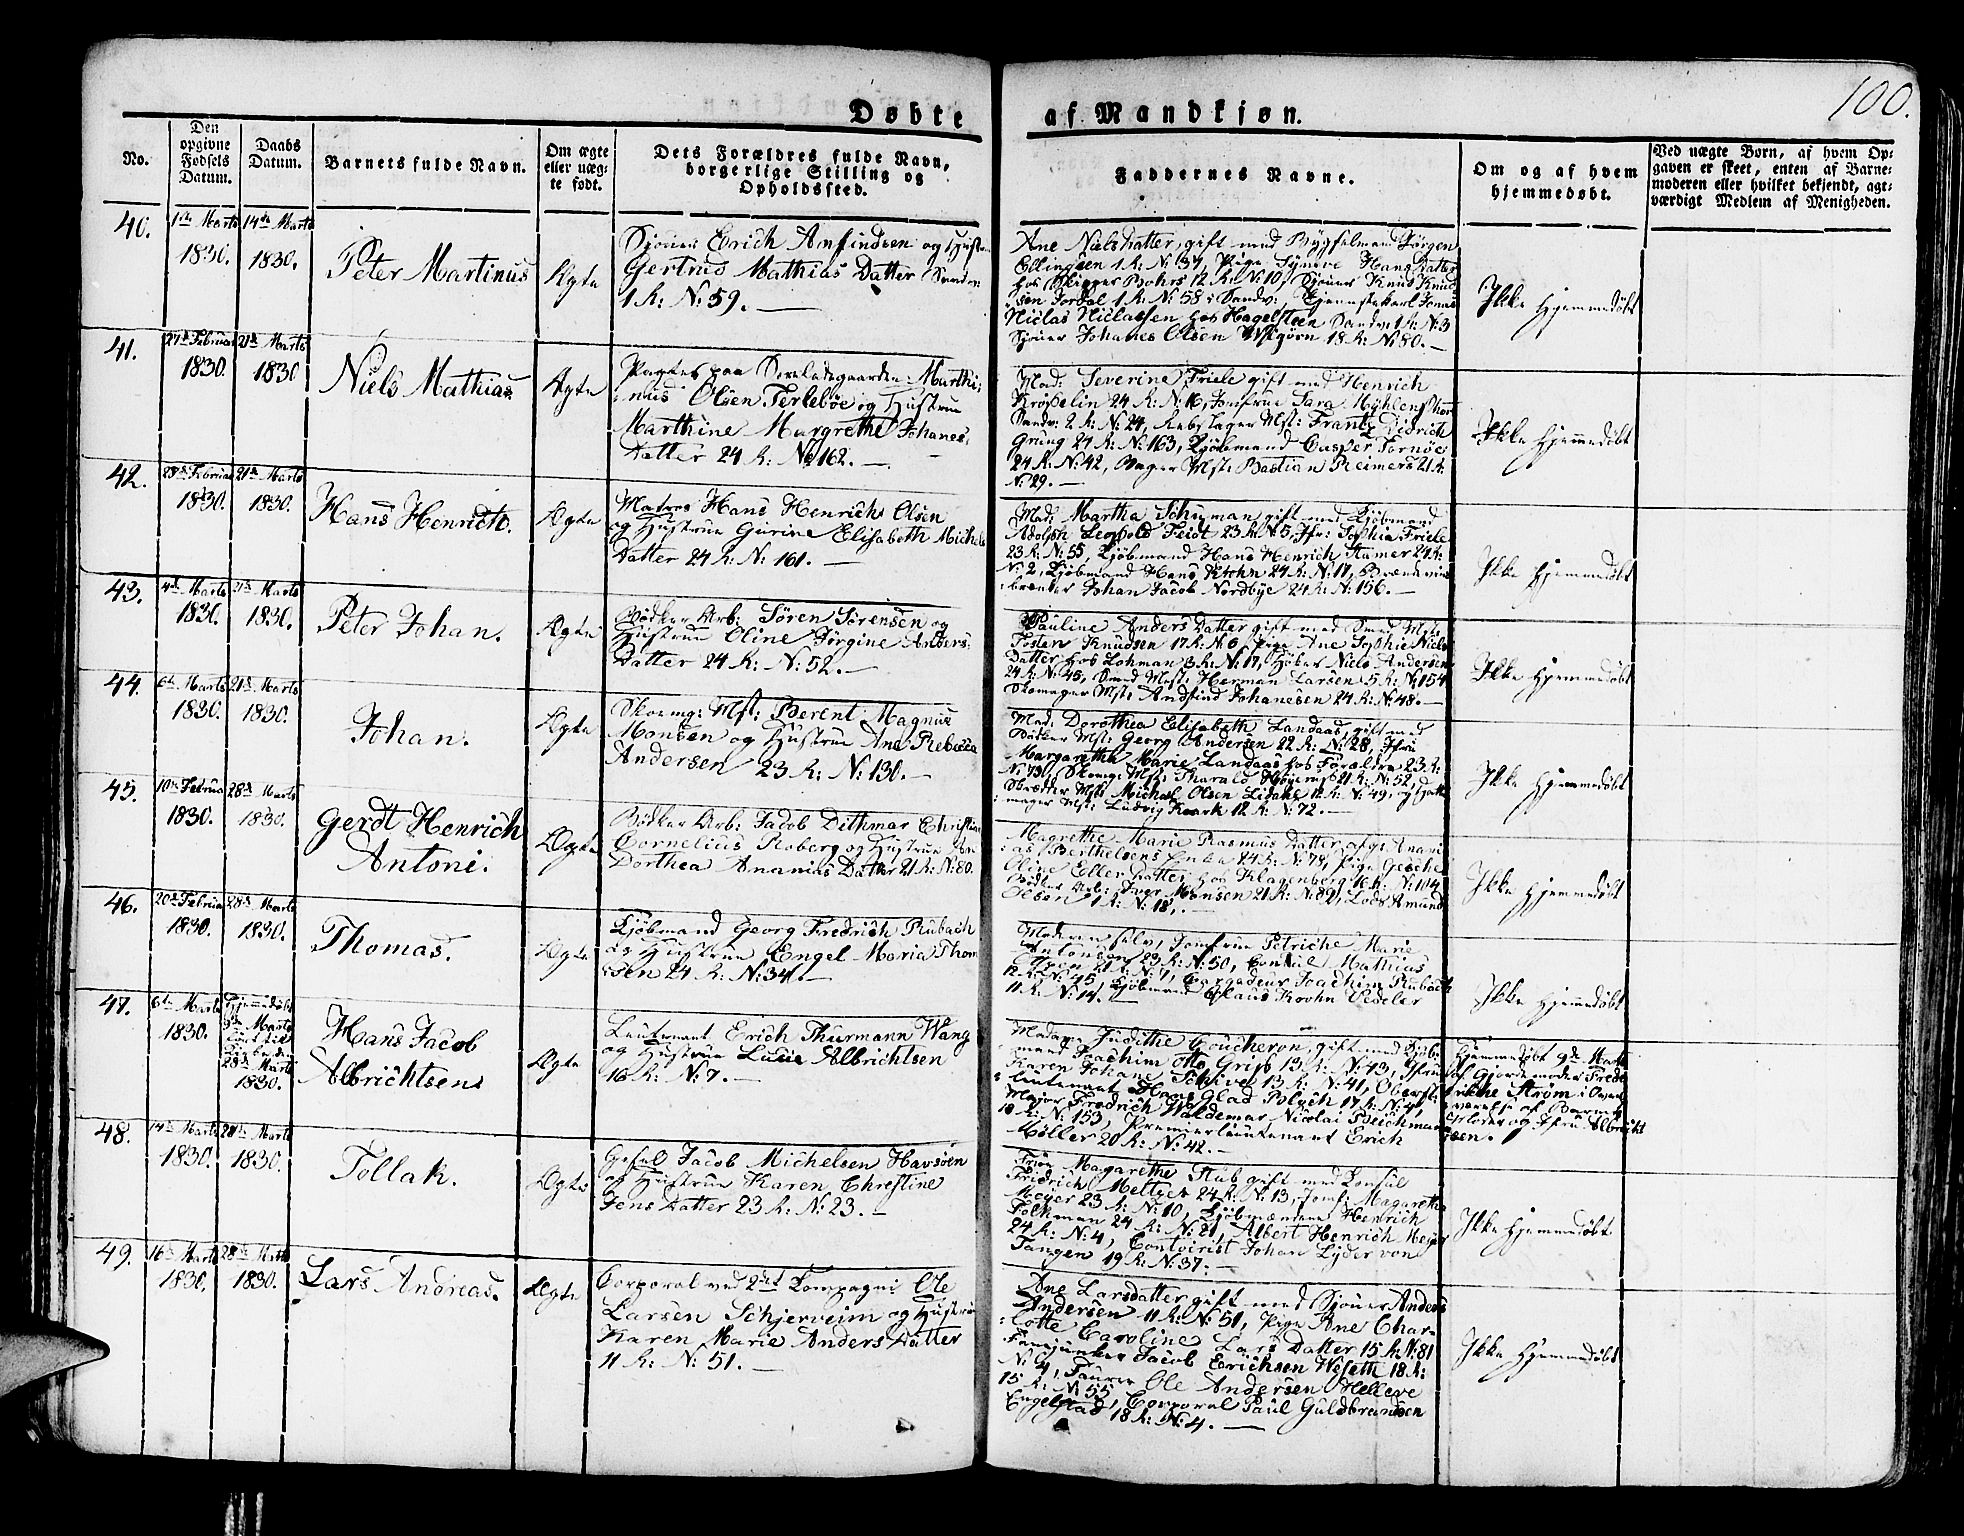 100.
Døbte af Mandkjøn.
No.
Den opgivne Fødsels Datum.
Daabs Datum.
Barnets fulde Navn.
Om ægte eller uægte født.
Dets Forældres fulde Navn, borgerlige Stilling og Opholdssted.
Faddernes Navne.
Om og af hvem hjemmedøbt.
Ved uægte Børn, af hvem Op-
gaven er skeet, enten af Barne-
moderen eller hvilket bekjendt, agt-
værdigt Medlem af Menigheden.
40.
1te Marts 1830.
14de Marts 1830.
Peter Martinus
Ægte
Sjøuer Erich Anfindsen og Hustru
Gertrud Mathias Datter Sandv:
1 R: No: 59.
Ane Niels Datter, gift med Bygselmand Jørgen
Ellingsen 1 R: No 37, Pige Synneve Hans Datter
hos Skipper Bohrs 12 R: No 10, Sjøuer Knud Knud
sen Jordal 1 R: No 58 i Sandv:, Tjenestekarl Jonas
Niclas Niclassen hos Hagelsteen Sandv: 1 R: No: 3
Sjøuer Johanes Olsen Wigørn 18 R: No 80.
Ikke Hjemmedøbt
41.
27de Februar 1830.
21de Marts 1830
Niels Mathias.
Ægte
paa Marthi-
nus Olsen Terlebøe og Hustrue
Marthine Margrethe Johanes
Datter 24 R: No 162.
Mad: Severine Friele gift med Henrich
Krøpelin 24 R: No 16, Jomfrue Sara Myhlenphort
Sandv: 2 R: No: 24, Rebslager Mst: Frantz Didrich
Grung 24 R: No: 163, Kjøbmand Casper Tornøe
24 R: No: 42, Bager Mst: Bastian Reimers 21 R:
No: 29.
Ikke Hjemmedøbt
42.
28de Februar 1830.
21de Marts 1830.
Hans Henrich.
Ægte
Matros Hans Henrichs Olsen
og Hustrue Gurine Elisabeth Michels
Datter 24 R: No: 161.
Mad: Martha Schuman, gift med Kjøbmand
Adolph Leopold Feidt 23 R: No 5, Jfr: Sophia Friele
23 R: No: 55, Kjøbmand Hans Henrich Stamer 24 R:
No: 2, Kjøbmand Hans Krohn 24 R: No 17, Brændeviins
brænder Johan Jacob Nordbye 24 R: No 156.
Ikke Hjemmedøbt
43.
4de Marts 1830.
21de Marts 1830.
Peter Johan.
Ægte
Bødker Arb: Søren Sørensen og
Hustrue Oline Jørgine Anders
Datter 24 R: No: 52.
Pauline Anders Datter gift med Smed Mst:
Tosten Knudsen 17 R: No 6, Pige Ane Sophie Niels
Datter hos Lohman 3 R: No 17, Høker Niels Andersen
24 R: No: 45, Smed Mst: Herman Larsen 5 R: No 154
Skomager Mst: Andfind Johanesen 24 R: No: 48.
Ikke Hjemmedøbt
44.
6te Marts 1830.
21de Marts 1830.
Johan.
Ægte
Skoemg: Mst: Berent Magnus
Monsen og Hustrue Ane Rebecca
Andersen 23 R: No: 130.
Mad: Dorothea Elisabeth Landaas, gift med
Bødker Mst: Georg Andersen 22 R: No: 28, Jfru
Margaretha Marie Landaas hos Forældre 23 R:
No: 73, Skomg: Mst: Tharald 21 R: No: 52,
Skrædder Mst: Michael Olsen 12 R: No: 49, og Hatte-
mager Mst: Ludvig 12 R: No: 72.
Ikke Hjemmedøbt
45.
10de Februar 1830.
28de Marts 1830.
Gerdt Henrich
Antoni.
Ægte
Bødker Arb: Jacob Dithmar Christian
Cornelius Roberg og Hustrue An
Dorthea Ananias Datter 21 R: No: 80.
Magrethe Marie Rasmus Datter afg: Anani
as Berthelsens Enke 24 R: No: 78, Pige Gesche
Oline Eller Datter hos Klagenberg 16 R: No: 104
Bødk: Arb: Iver Monsen 21 R: No: 89, Lods Amund
Olsen 1 R: No: 18.
Ikke Hjemmedøbt
46.
20de Februar 1830.
28de Marts 1830.
Thomas.
Ægte
Kjøbmand Georg Fredrich Rubach
og Hustrue Engel Maria Thom
sen 24 R: No: 34.
Moderen selv, Jomfrue Petriche Marie
Antonsen 23 R: No: 50, Consul Mathias
No: 1, Cargadeur Joachim Rubach
12 R: No: 45 Kjøbmand Claus Krohn Vedeler
11 R: No: 14.
Ikke Hjemmedøbt
47.
6te Marts 1830.
Hjemmedøbt
9de Marts
28de Marts
1830.
Hans Jacob
Albrichtsen
Ægte
Leutenant Erich Thurmann Wang
og Hustrue Lucie Albrichtsen
16 R: No: 7.
Madam Judithe Coucheron, gift med Kjøb-
mand Joachim Otto Grip 13 R: No: 43, Jfrue
Karen Johane Schive 13 R: No: 41, Oberst-
lieutenant Hans Glad Bloch 17 R: No: 4,
Major Fredrich Waldemar Nicolai Beichmann
10 R: No: 153, Premierlieutenant Erich
Møller 20 R: No: 42.
Hjemmedøbt 9de Marts
af Gjordemoder Frede
rikke Strøm i Over-
værelse af Barnets
Moder og Jfru Albricht
sen.
48.
14de Marts 1830.
28de Marts 1830.
Tollak.
Ægte
Jacob Michelsen Havsøen
og Hustrue Karen Christine
Jens Datter 23 R: No: 23.
Frue Magarethe Stub gift med Consul
Fridrich Meltzer 24 R: No: 13, Jomf: Magaretha
Meyer 23 R: No: 10, Kjøbmændene Henrich
Folkman 24 R: No: 21, Albert Henrich Meyer
24 R: No: 4, Contoirist Johan Lyder von
Tangen 19 R: No: 37.
Ikke Hjemmedøbt
49.
16de Marts 1830.
28de Marts 1830.
Lars Andreas.
Ægte
Corporal ved 2det Compagni Ole
Larsen Schjerveim og Hustrue
Karen Marie Anders Datter
11 R: No: 51.
Ane Larsdatter gift med Sjøuer Anders
Andersen 11 R: No: 51, Pige Ane Char-
lotte Caroline Lars Datter 15 R: No: 81
Fanejunker Jacob Erichsen Wiseth 18 R:
No 4, Ole Andersen Helleve
15 R: No 55, Corporal Paul Guldbrandsen
Engelstad 18 R: No: 4.
Ikke Hjemmedøbt